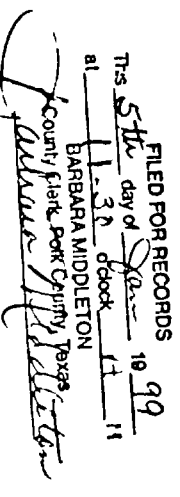 FILED FOR RECORDS
This 5th day of Jan 1999
at 11-30 o'clock M
BARBARA MIDDLETON
County Clerk, Polk County, Texas
Barbara Middleton